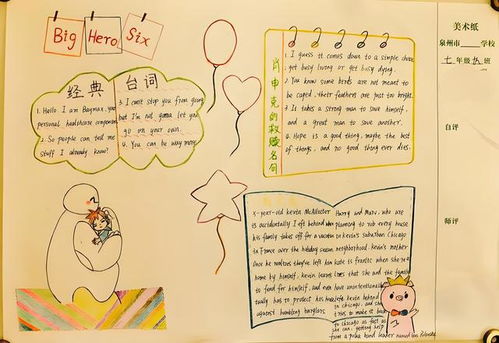 Big Hero Six
经典 台词
1. Hello. I am Baymax, your
personal healthcare companion
2. So people can tell me
stuff I already know!
3. I can't stop you from going
but I'm not gonna let you
go on your own.
4. You can be way more.
肖申克的救赎名句
1. I guess it comes down to a simple choice,
get busy living or get busy dying.
2. You know some birds are not meant to
be caged, their feathers are just too bright.
3. It takes a strong man to save himself,
and a great man to save another.
4. Hope is a good thing, maybe the best
of things, and no good thing ever dies.
-year-old kevin McAllister Harry and Marv, who are
is accidentally left behind when planning to rob every house
his family takes off for a vacation in Kevin's suburban Chicago
in France over the holiday season neighborhood kevin's mother
Once he realizes they've left him home is frantic when she
home by himself, kevin learns that she and the family
to fend for himself, and
has to protect his house kevin behind
against bumbling burglars
in chicago, and she
tries to make it back
to chicago as fast as
she can, getting help
from a polka band leader named
美术纸
泉州市 学校
七 年级 班
自评
师评